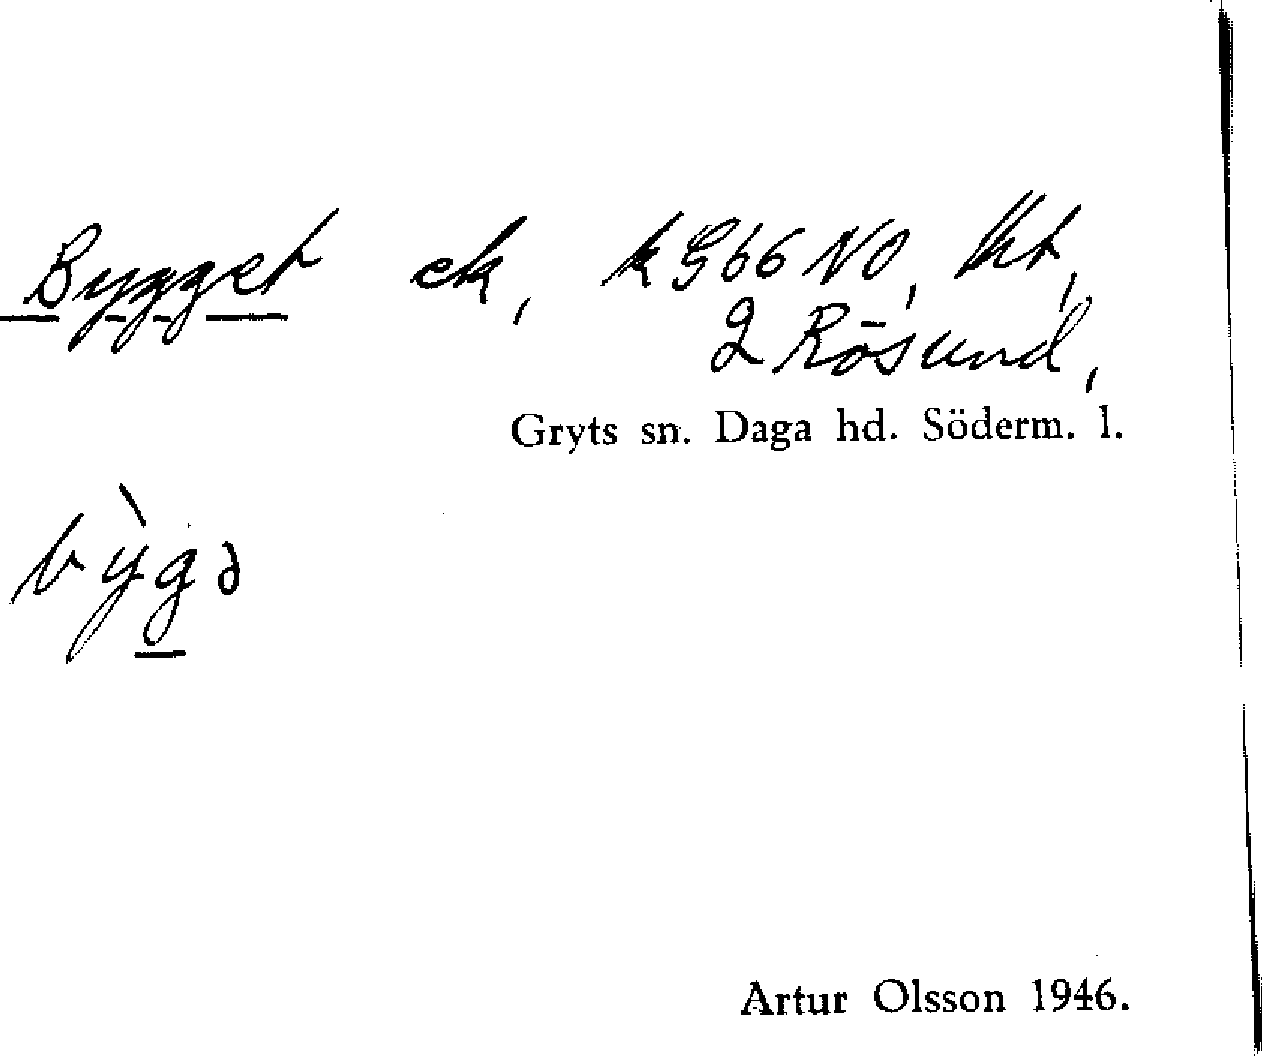 Bygget ek, k G66 NO, Ht,
2 Rösund,
Gryts sn. Daga hd. Söderm. l.
bỳgə
Artur Olsson 1946.